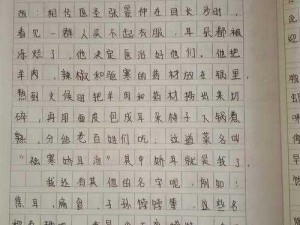 想：相传医圣张景仲在目长沙时，
看见一群人买不起衣服，耳朵都被
冻烂了，他决定医治好他们，他把
羊肉、辣椒和驱寒的药材放在锅里，
熬到火候时把羊肉和药材捞出来切
碎，再用面皮包成耳朵样子下锅煮
熟，分给老百姓们吃，这道菜名叫
“祛寒娇耳汤”其中娇耳就是我了。
我还有其他的名字呢，例如：
焦耳，扁食，子孙饽饽等，这些名